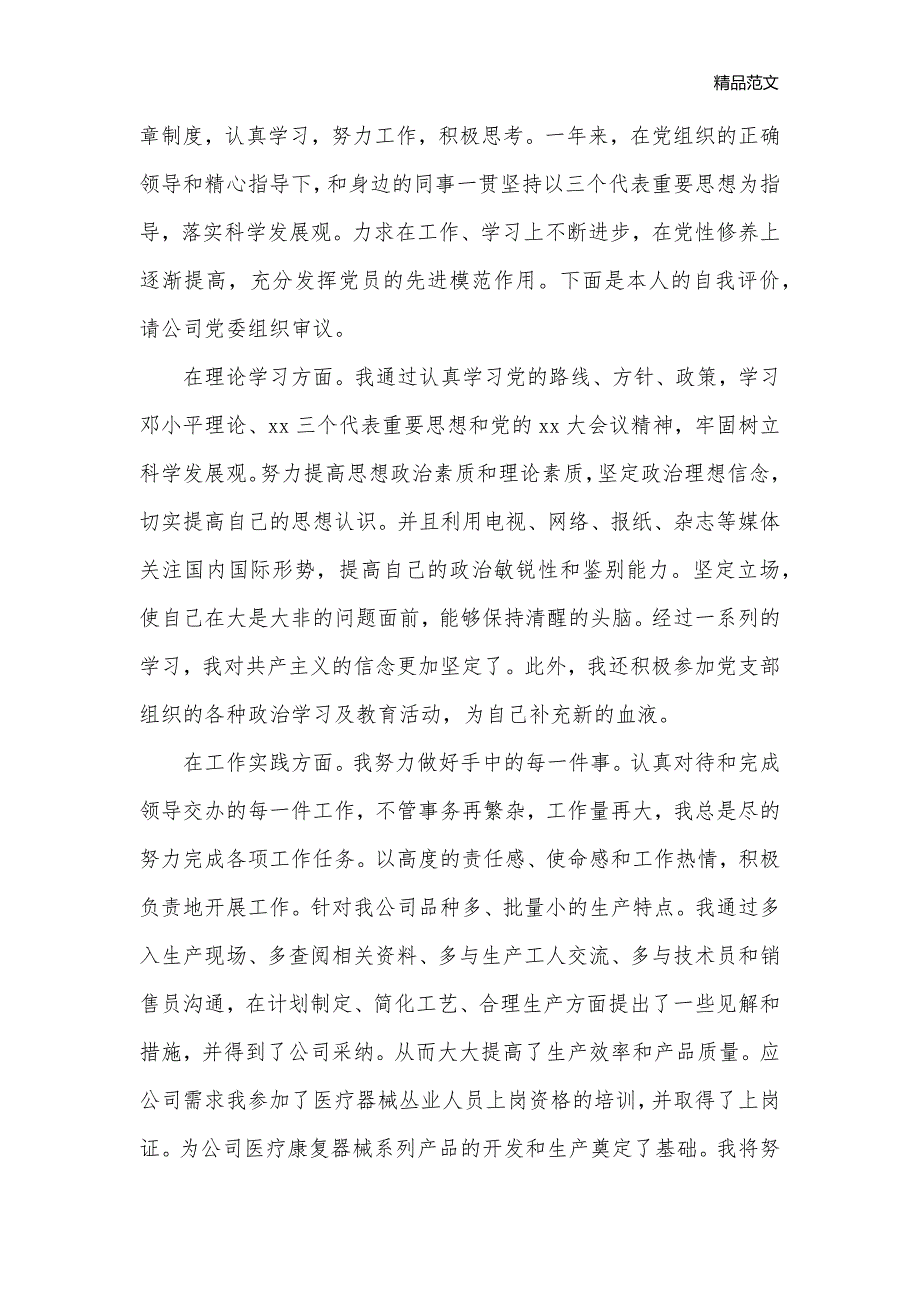 精品范文
章制度，认真学习，努力工作，积极思考。一年来，在党组织的正确
领导和精心指导下，和身边的同事一贯坚持以三个代表重要思想为指
导，落实科学发展观。力求在工作、学习上不断进步，在党性修养上
逐渐提高，充分发挥党员的先进模范作用。下面是本人的自我评价，
请公司党委组织审议。
在理论学习方面。我通过认真学习党的路线、方针、政策，学习
邓小平理论、xx 三个代表重要思想和党的 xx 大会议精神，牢固树立
科学发展观。努力提高思想政治素质和理论素质，坚定政治理想信念，
切实提高自己的思想认识。并且利用电视、网络、报纸、杂志等媒体
关注国内国际形势，提高自己的政治敏锐性和鉴别能力。坚定立场，
使自己在大是大非的问题面前，能够保持清醒的头脑。经过一系列的
学习，我对共产主义的信念更加坚定了。此外，我还积极参加党支部
组织的各种政治学习及教育活动，为自己补充新的血液。
在工作实践方面。我努力做好手中的每一件事。认真对待和完成
领导交办的每一件工作，不管事务再繁杂，工作量再大，我总是尽的
努力完成各项工作任务。以高度的责任感、使命感和工作热情，积极
负责地开展工作。针对我公司品种多、批量小的生产特点。我通过多
入生产现场、多查阅相关资料、多与生产工人交流、多与技术员和销
售员沟通，在计划制定、简化工艺、合理生产方面提出了一些见解和
措施，并得到了公司采纳。从而大大提高了生产效率和产品质量。应
公司需求我参加了医疗器械丛业人员上岗资格的培训，并取得了上岗
证。为公司医疗康复器械系列产品的开发和生产奠定了基础。我将努